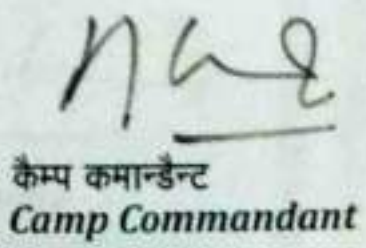 कैम्प कमान्डैन्ट
Camp Commandant